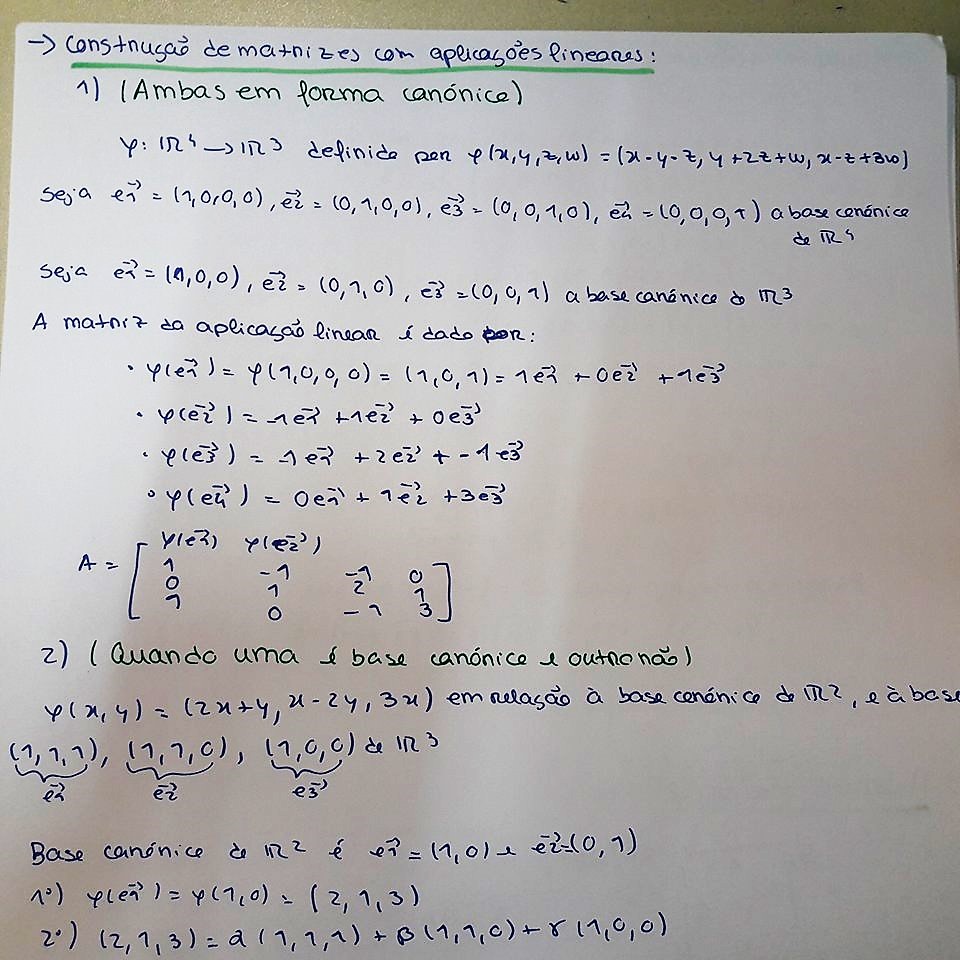 → Construção de matrizes com aplicações lineares:
1) (Ambas em forma canónica)
φ: ℝ⁴ → ℝ³ definida por φ(x,y,z,w) = (x-y-z, y+2z+w, x-z+3w)
seja e1⃗ = (1,0,0,0), e2⃗ = (0,1,0,0), e3⃗ = (0,0,1,0), e4⃗ = (0,0,0,1) a base canónica
de ℝ⁴
seja e1⃗ = (1,0,0), e2⃗ = (0,1,0), e3⃗ = (0,0,1) a base canónica de ℝ³
A matriz da aplicação linear é dado por:
• φ(e1⃗) = φ(1,0,0,0) = (1,0,1) = 1e1⃗ + 0e2⃗ + 1e3⃗
• φ(e2⃗) = -1e1⃗ + 1e2⃗ + 0e3⃗
• φ(e3⃗) = -1e1⃗ + 2e2⃗ + -1e3⃗
• φ(e4⃗) = 0e1⃗ + 1e2⃗ + 3e3⃗
φ(e1⃗) φ(e2⃗)
A = [ 1 -1 -1 0
0 1 2 1
1 0 -1 3 ]
2) (Quando uma é base canónica e outro não)
φ(x,y) = (2x+y, x-2y, 3x) em relação à base canónica de ℝ², e à base
(1,1,1), (1,1,0), (1,0,0) de ℝ³
e1⃗ e2⃗ e3⃗
Base canónica de ℝ² é e1⃗ = (1,0) e e2⃗ = (0,1)
1º) φ(e1⃗) = φ(1,0) = (2,1,3)
2º) (2,1,3) = α(1,1,1) + β(1,1,0) + γ(1,0,0)